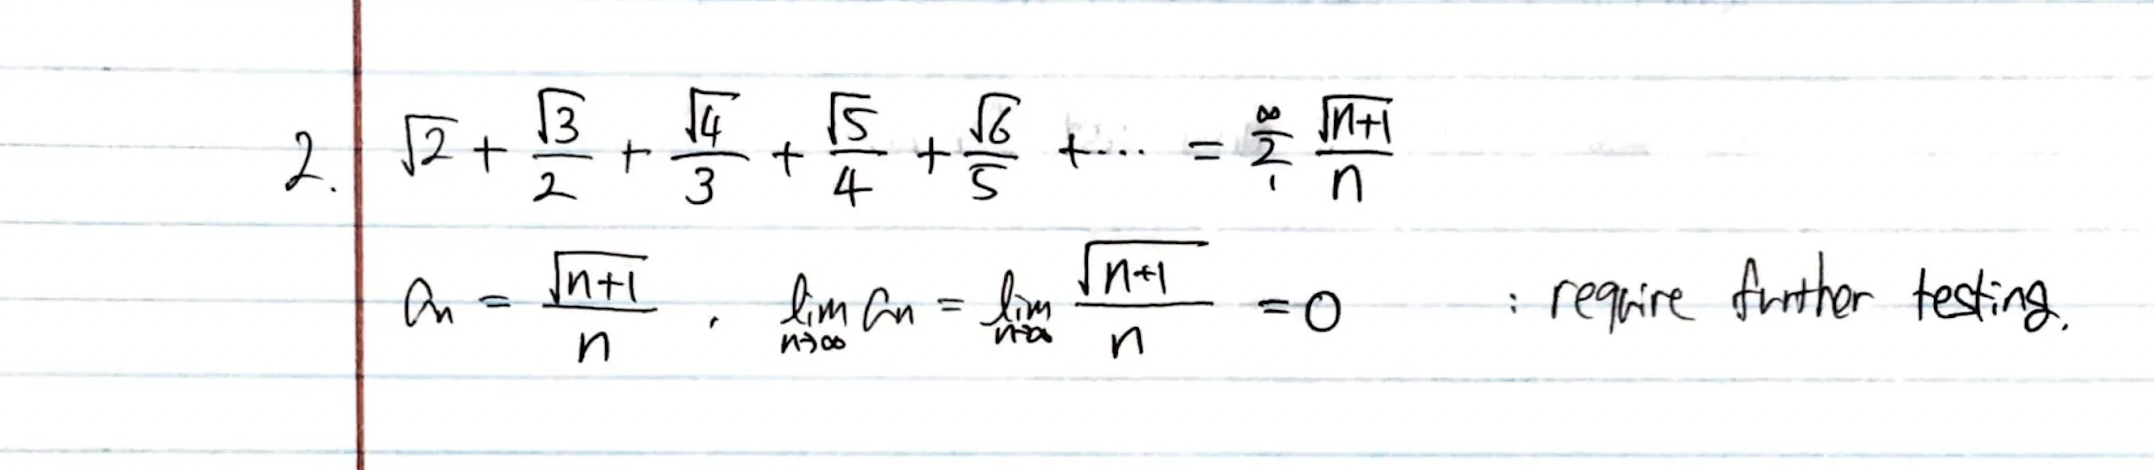 2. √2 + √3/2 + √4/3 + √5/4 + √6/5 + ... = ∑₁^∞ √(n+1)/n
aₙ = √(n+1)/n . lim n→∞ aₙ = lim n→∞ √(n+1)/n = 0 : require further testing.